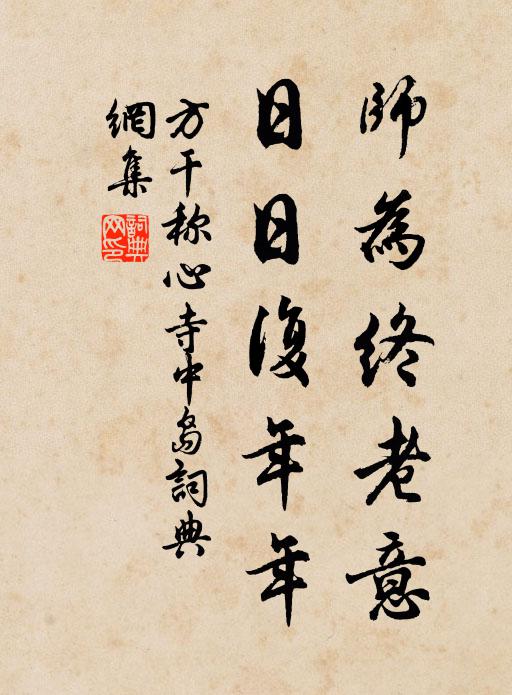 師為終老意
日日復年年
方干称心寺中島詞典
網集
詞典網印